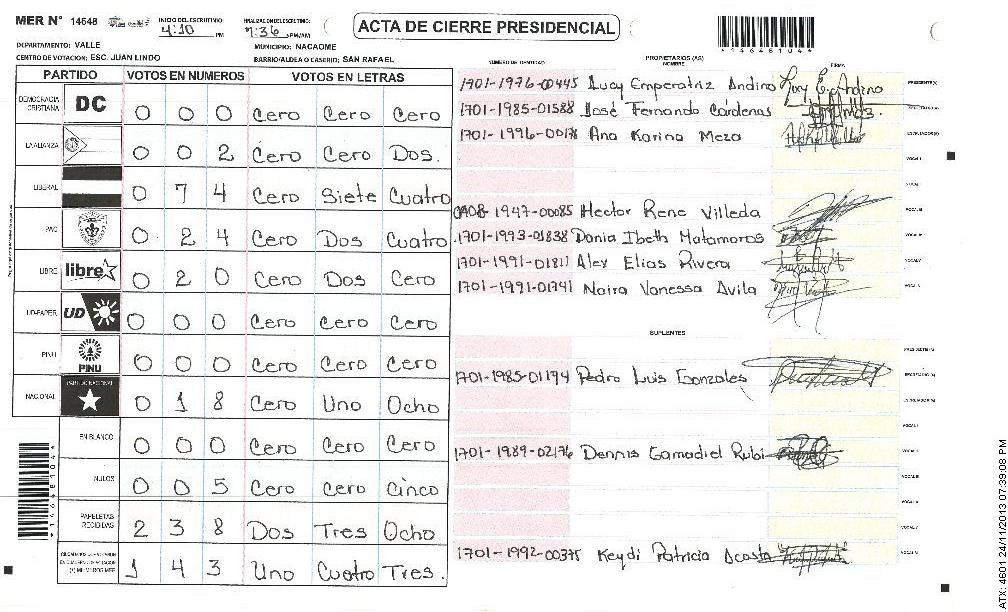 MER N° 14648
INICIO DEL ESCRUTINIO: 4:10 PM
FINALIZACION DEL ESCRUTINIO: 7:36 PM/AM
ACTA DE CIERRE PRESIDENCIAL
146481044
DEPARTAMENTO: VALLE
MUNICIPIO: NACAOME
CENTRO DE VOTACION: ESC. JUAN LINDO
BARRIO/ALDEA O CASERIO: SAN RAFAEL
PARTIDO VOTOS EN NUMEROS VOTOS EN LETRAS
DEMOCRACIA CRISTIANA DC 0 0 0 Cero Cero Cero
LA ALIANZA 0 0 2 Cero Cero Dos.
LIBERAL 0 7 4 Cero Siete Cuatro
PAC 0 2 4 Cero Dos Cuatro
LIBRE libre 0 2 0 Cero Dos Cero
UD-FAPER UD 0 0 0 Cero Cero Cero
PINU PINU 0 0 0 Cero Cero Cero
NACIONAL PARTIDO NACIONAL 0 1 8 Cero Uno Ocho
EN BLANCO 0 0 0 Cero Cero Cero
NULOS 0 0 5 Cero cero Cinco
PAPELETAS RECIBIDAS 2 3 8 Dos Tres Ocho
1 4 3 Uno Cuatro Tres.
146481044
NÚMERO DE IDENTIDAD
PROPIETARIOS (AS)
NOMBRE
FIRMA
1701-1976-00445 Lucy Emperatriz Andino PRESIDENTE(A)
1701-1985-01588 José Fernando Cárdenas
1701-1996-00178 Ana Karina Meza
0908-1947-00085 Hector Rene Villeda
1701-1993-01838 Dania Ibeth Matamoros
1701-1991-01811 Alex Elias Rivera
1701-1991-01741 Naira Vanessa Avila
SUPLENTES
PRESIDENTE(A)
1701-1985-01194 Pedro Luis Gonzales SECRETARIO(A)
1701-1989-02176 Dennis Gamadiel Rubi
1701-1992-00375 Keydi Patricia Acosta
ATX: 4601 24/11/2013 07:39:08 PM